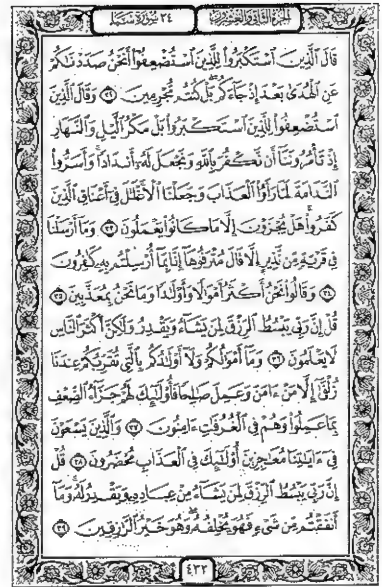 الجزء الثاني والعشرون ٣٤ سورة سبأ
قَالَ ٱلَّذِينَ ٱسْتَكْبَرُوا۟ لِلَّذِينَ ٱسْتُضْعِفُوٓا۟ أَنَحْنُ صَدَدْنَٰكُمْ
عَنِ ٱلْهُدَىٰ بَعْدَ إِذْ جَآءَكُم ۖ بَلْ كُنتُم مُّجْرِمِينَ ٣٢ وَقَالَ ٱلَّذِينَ
ٱسْتُضْعِفُوا۟ لِلَّذِينَ ٱسْتَكْبَرُوا۟ بَلْ مَكْرُ ٱلَّيْلِ وَٱلنَّهَارِ
إِذْ تَأْمُرُونَنَآ أَن نَّكْفُرَ بِٱللَّهِ وَنَجْعَلَ لَهُۥٓ أَندَادًا ۚ وَأَسَرُّوا۟
ٱلنَّدَامَةَ لَمَّا رَأَوُا۟ ٱلْعَذَابَ وَجَعَلْنَا ٱلْأَغْلَٰلَ فِىٓ أَعْنَاقِ ٱلَّذِينَ
كَفَرُوا۟ ۚ هَلْ يُجْزَوْنَ إِلَّا مَا كَانُوا۟ يَعْمَلُونَ ٣٣ وَمَآ أَرْسَلْنَا
فِى قَرْيَةٍ مِّن نَّذِيرٍ إِلَّا قَالَ مُتْرَفُوهَآ إِنَّا بِمَآ أُرْسِلْتُم بِهِۦ كَٰفِرُونَ
٣٤ وَقَالُوا۟ نَحْنُ أَكْثَرُ أَمْوَٰلًا وَأَوْلَٰدًا وَمَا نَحْنُ بِمُعَذَّبِينَ ٣٥
قُلْ إِنَّ رَبِّى يَبْسُطُ ٱلرِّزْقَ لِمَن يَشَآءُ وَيَقْدِرُ وَلَٰكِنَّ أَكْثَرَ ٱلنَّاسِ
لَا يَعْلَمُونَ ٣٦ وَمَآ أَمْوَٰلُكُمْ وَلَآ أَوْلَٰدُكُم بِٱلَّتِى تُقَرِّبُكُمْ عِندَنَا
زُلْفَىٰٓ إِلَّا مَنْ ءَامَنَ وَعَمِلَ صَٰلِحًا فَأُو۟لَٰٓئِكَ لَهُمْ جَزَآءُ ٱلضِّعْفِ
بِمَا عَمِلُوا۟ وَهُمْ فِى ٱلْغُرُفَٰتِ ءَامِنُونَ ٣٧ وَٱلَّذِينَ يَسْعَوْنَ
فِىٓ ءَايَٰتِنَا مُعَٰجِزِينَ أُو۟لَٰٓئِكَ فِى ٱلْعَذَابِ مُحْضَرُونَ ٣٨ قُلْ
إِنَّ رَبِّى يَبْسُطُ ٱلرِّزْقَ لِمَن يَشَآءُ مِنْ عِبَادِهِۦ وَيَقْدِرُ لَهُۥ ۚ وَمَآ
أَنفَقْتُم مِّن شَىْءٍ فَهُوَ يُخْلِفُهُۥ ۖ وَهُوَ خَيْرُ ٱلرَّٰزِقِينَ ٣٩
٤٣٢